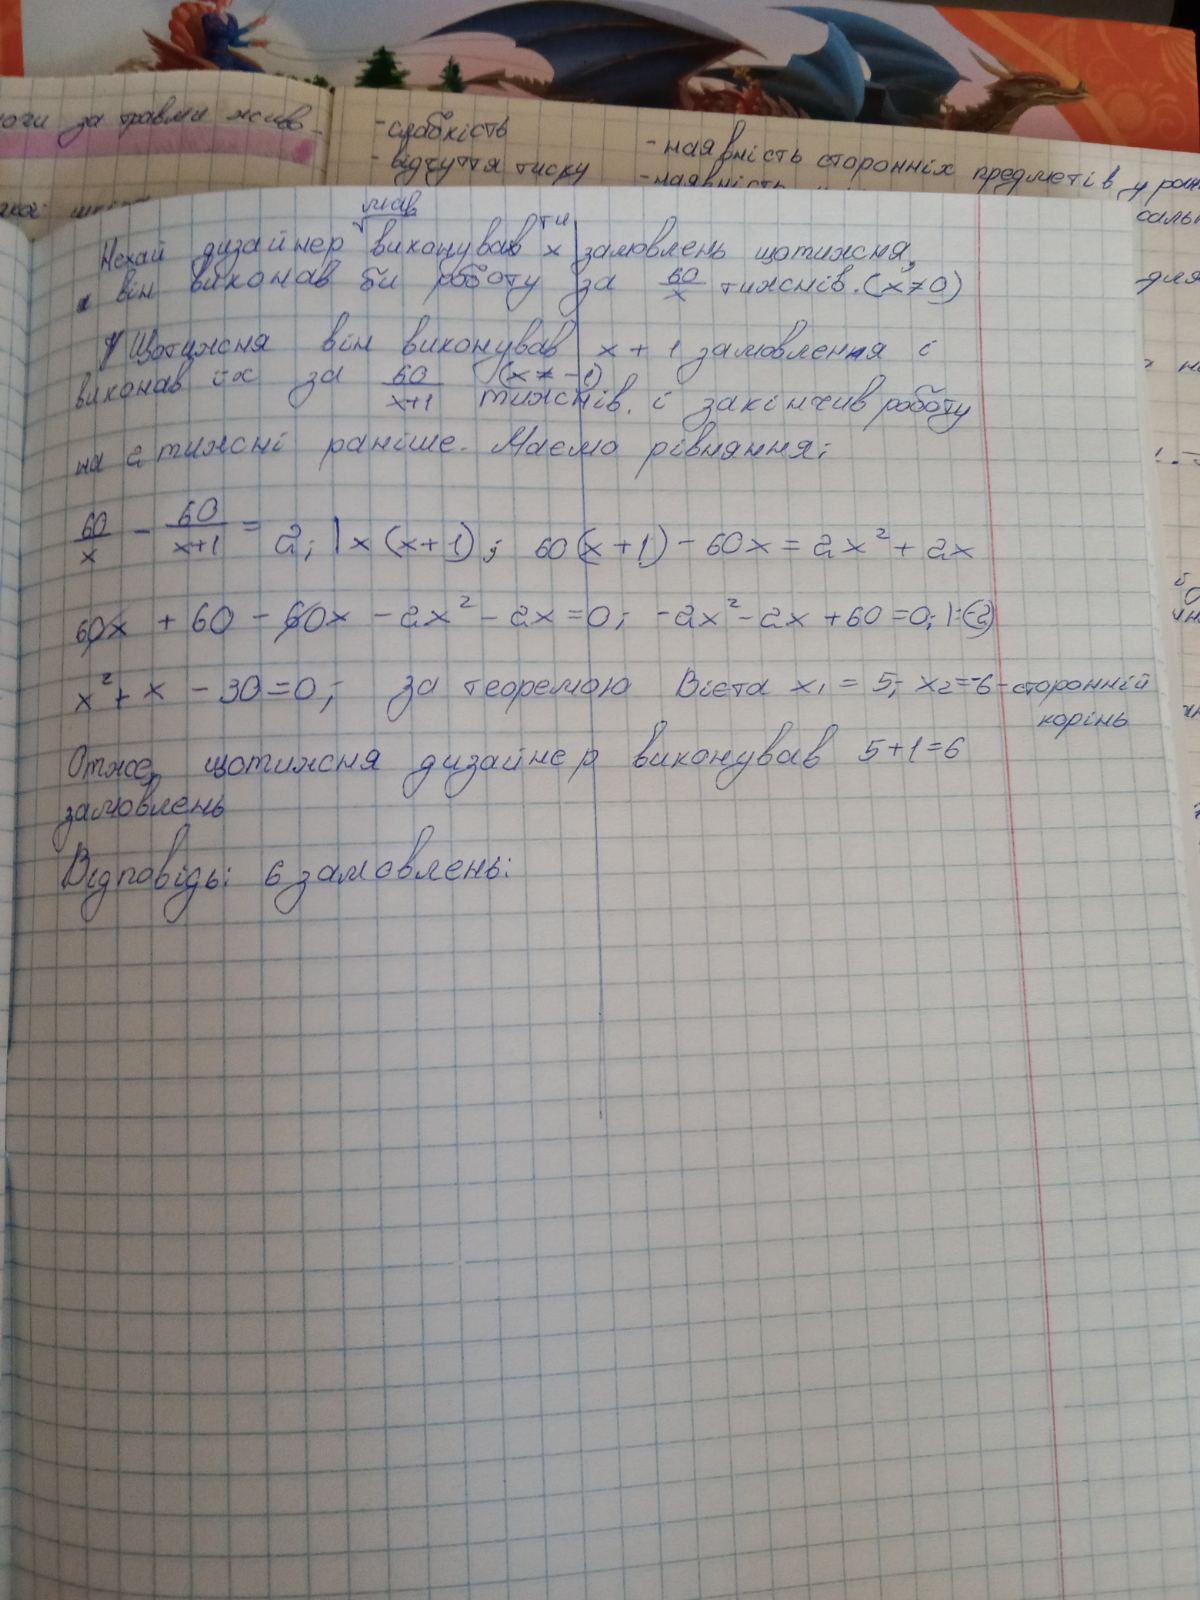 за травми живо-
-слабкість
-відчуття тиску
-наявність сторонніх предметів у рані
-наявність
мав
Нехай дизайнер виконувати х замовлень щотижня,
він виконав би роботу за 60/x тижнів. (x≠0)
Щотижня він виконував x+1 замовлення і
виконав їх за 60/x+1 (x≠-1) тижнів, і закінчив роботу
на 2 тижні раніше. Маємо рівняння:
60/x - 60/x+1 = 2; | x(x+1); 60(x+1) - 60x = 2x² + 2x
60x + 60 - 60x - 2x² - 2x = 0; -2x² - 2x + 60 = 0; |:(-2)
x² + x - 30 = 0; за теоремою Вієта x₁ = 5; x₂ = -6 - сторонній
корінь
Отже, щотижня дизайнер виконував 5+1=6
замовлень
Відповідь: 6 замовлень.